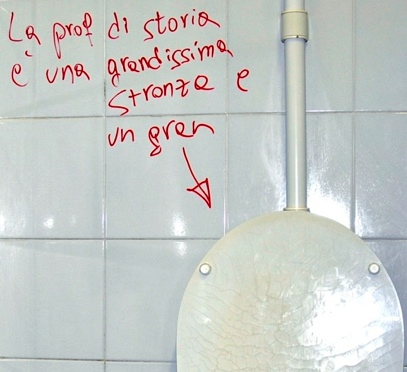 La prof di storia
è una grandissima
stronza e
un gran